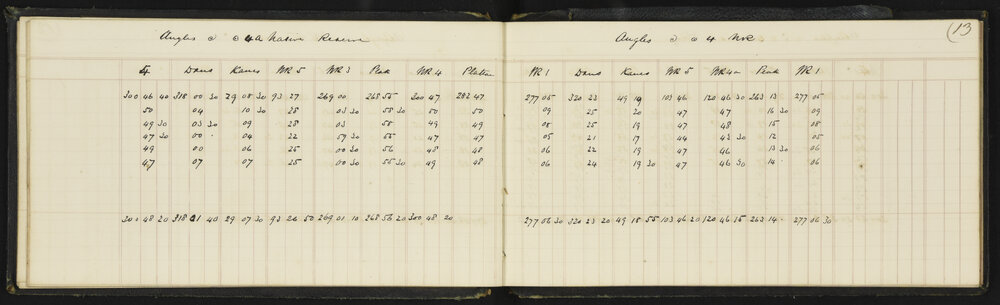 Angles @ @ 4A Native Reserve
54 Dans Kanes NR 5 NR 3 Peak NR 4 Platten
300 46 40 318 00 30 29 08 30 93 27 269 00 268 55 300 47 282 47
50 04 10 30 28 03 30 58 30 50 50
49 30 03 30 09 28 03 58 49 49
47 30 00 04 22 59 30 55 47 47
49 00 06 25 00 30 56 48 48
47 07 07 25 00 30 55 30 49 48
300 48 20 318 01 40 29 07 30 93 26 50 269 01 10 268 56 20 300 48 20
(13
Angles @ @ 4 NR
NR 1 Dans Kanes NR 5 NR 4a Peak NR 1
277 05 320 23 49 19 103 46 120 46 30 263 13 277 05
09 25 20 47 47 16 30 09
08 25 19 47 48 15 08
05 21 17 44 43 30 12 05
06 22 19 47 46 13 30 06
06 24 19 30 47 46 30 14 06
277 06 30 320 23 20 49 18 55 103 46 20 120 46 15 263 14 277 06 30